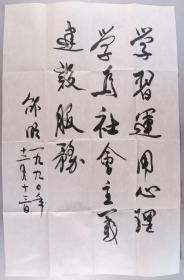 学習運用心理
学為社會主義
建設服務
邹明
一九九〇年
十二月十三日